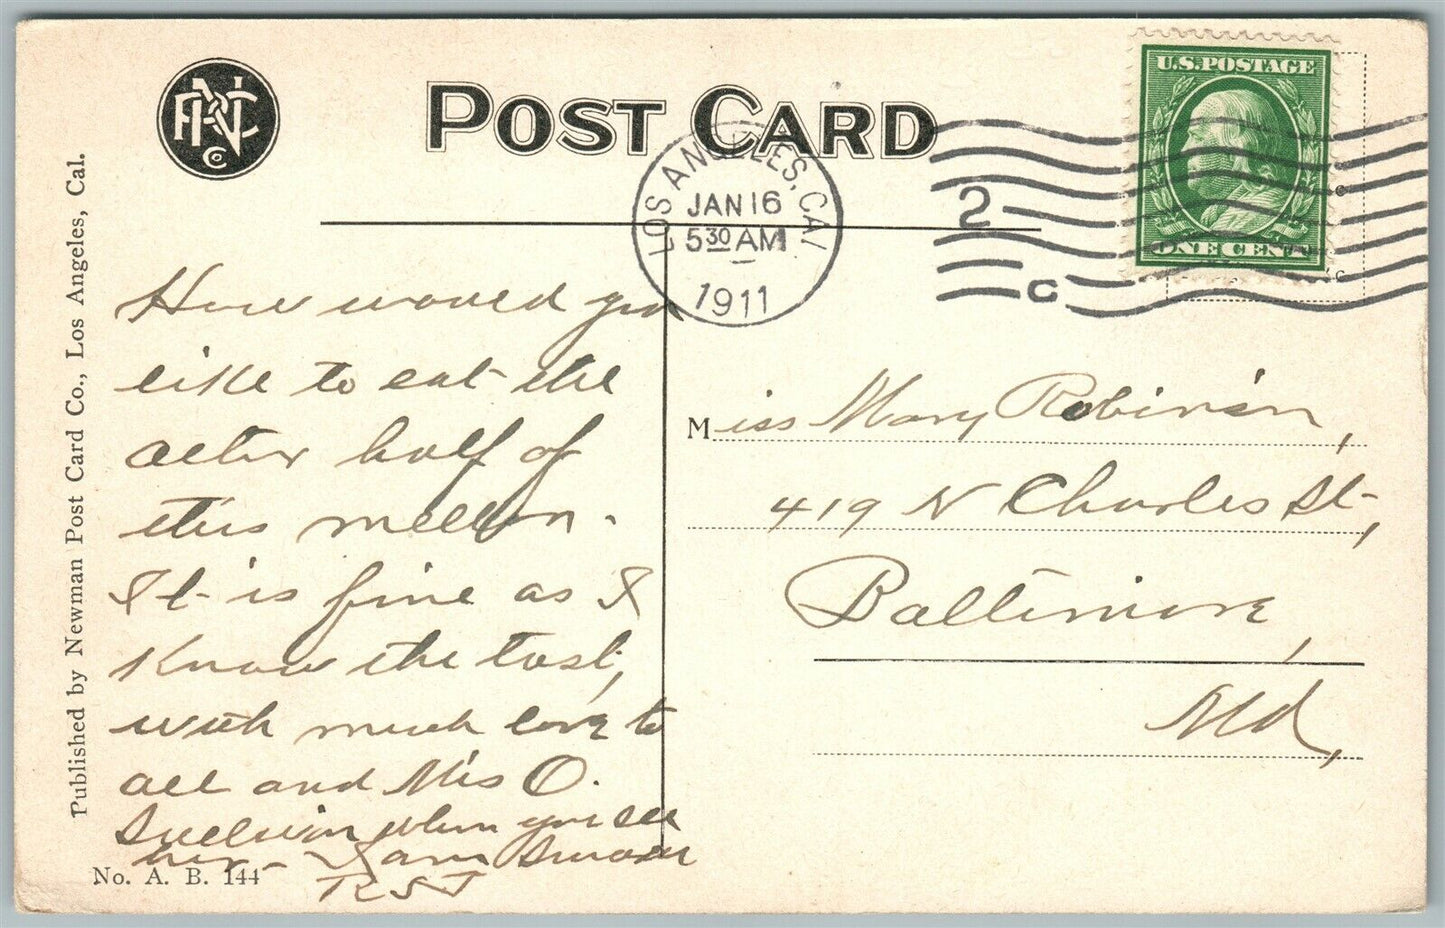 PNC Co
POST CARD
U.S. POSTAGE
ONE CENT
LOS ANGELES, CAL
JAN 16
5 30 AM
1911
2
C
Published by Newman Post Card Co., Los Angeles, Cal.
How would you
like to eat the
other half of
this mellon.
It is fine as I
Know the tast,
with much love to
all and Miss O.
Sullivan when you see
her. I am
RST
Miss Mary Robinson,
419 N Charles St,
Baltimore,
Md,
No. A. B. 144